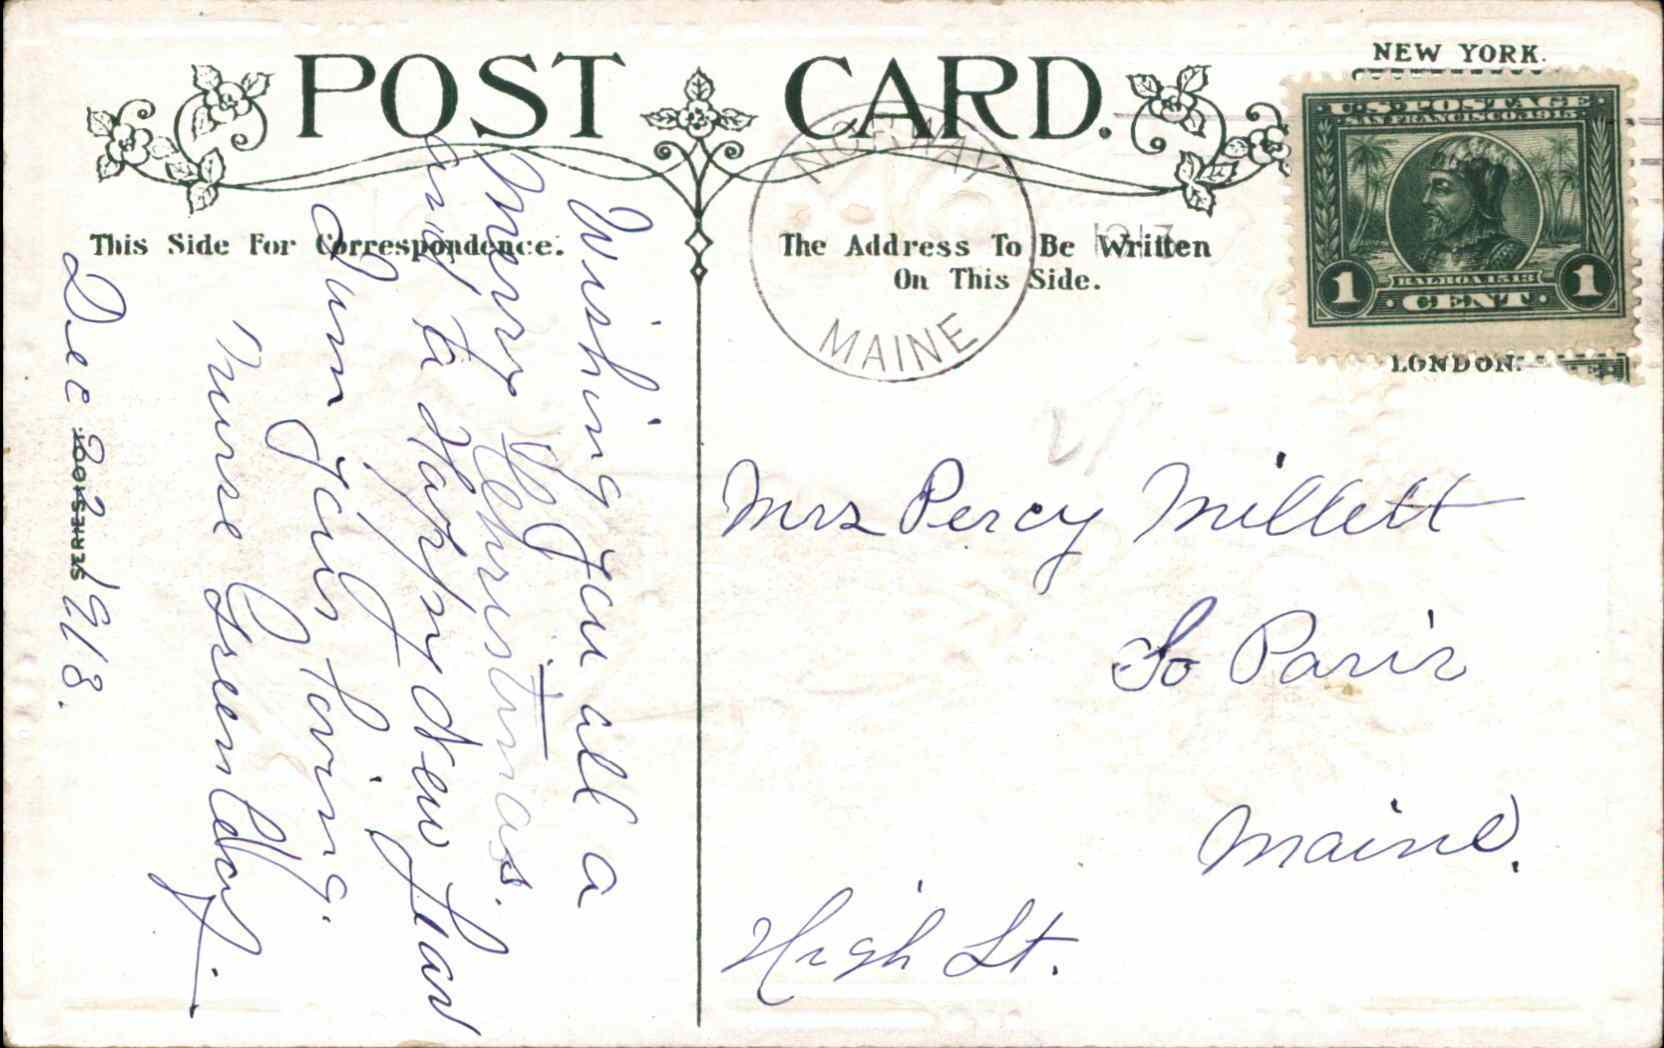 POST CARD.
NEW YORK.
U.S. POSTAGE
SAN FRANCISCO 1915
BALBOA 1513
1 CENT 1
LONDON.
NORWAY
MAINE
191
This Side For Correspondence.
The Address To Be Written
On This Side.
Wishing you all a
Merry Christmas.
and a Happy New Year
I am your loving
nurse
Dec 22 1913.
SERIES
Mrs Percy Millett
So Paris
Maine.
High St.